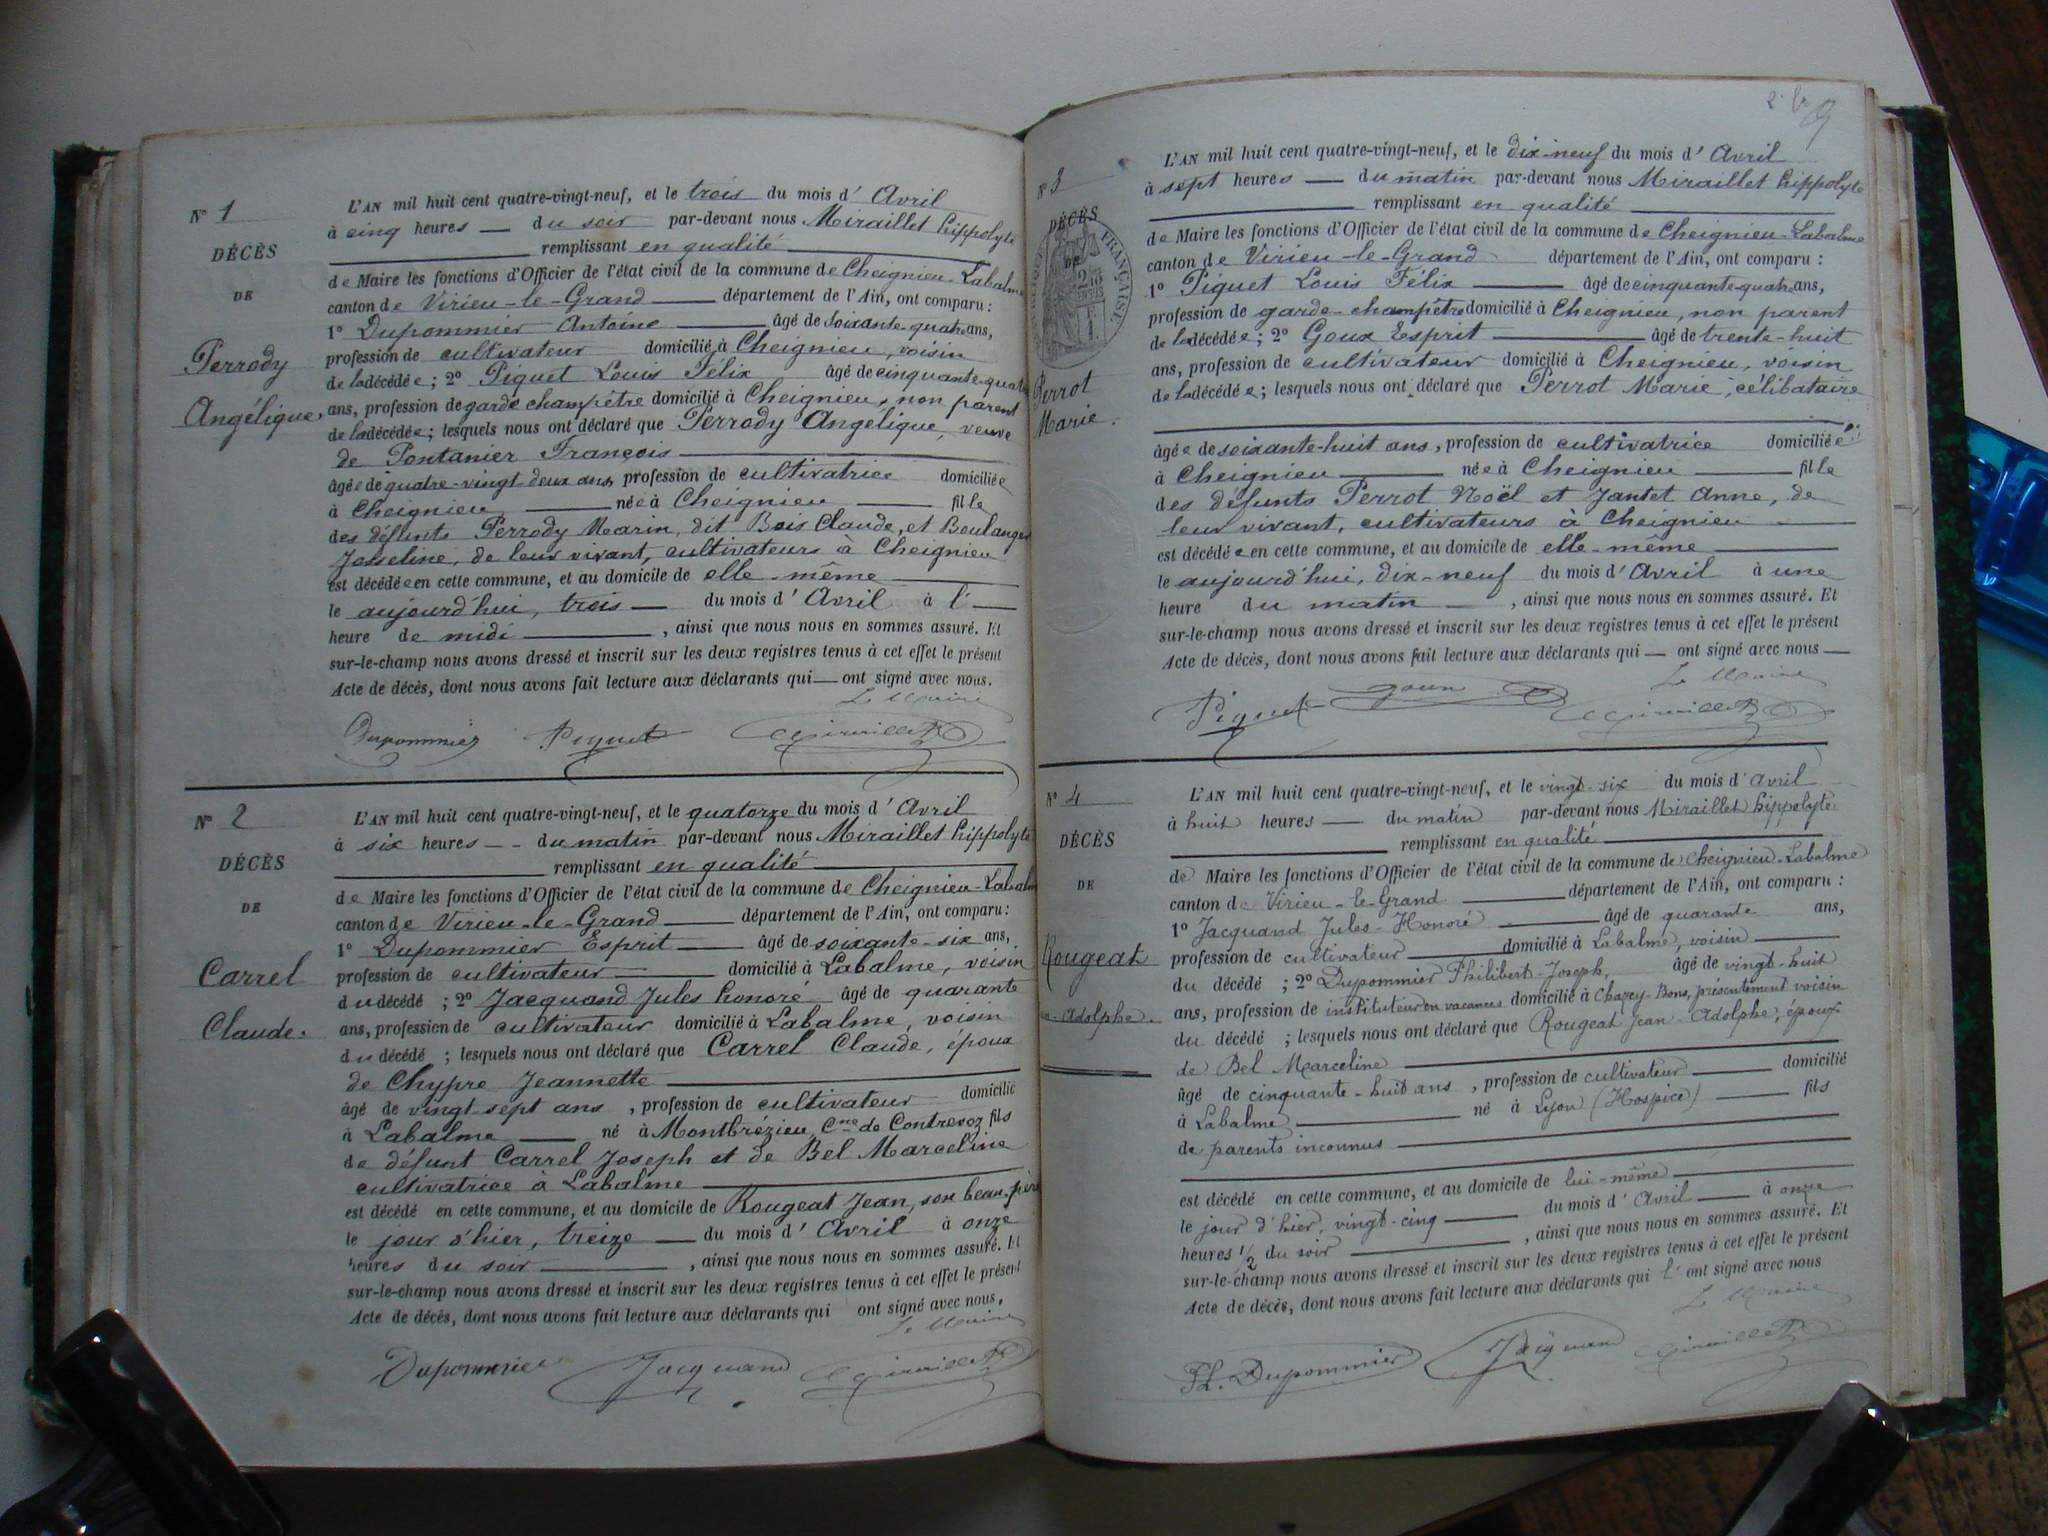 N° 1
DÉCÈS
DE
Perrody
Angélique.
L'AN mil huit cent quatre-vingt-neuf, et le trois du mois d' Avril
à cinq heures — du soir par-devant nous Miraillet hippolyte
remplissant en qualité
de Maire les fonctions d'Officier de l'état civil de la commune de Cheignieu-Labalme
canton de Virieu-le-Grand — département de l'Ain, ont comparu :
1° Dupommier Antoine — âgé de soixante-quatre ans,
profession de cultivateur domicilié à Cheignieu, voisin
de la décédée ; 2° Piguet Louis Félix âgé de cinquante-quatre
ans, profession de garde champêtre domicilié à Cheignieu, non parent
de la décédée ; lesquels nous ont déclaré que Perrody Angélique, veuve
de Pontanier François
âgée de quatre-vingt-deux ans, profession de cultivatrice domiciliée
à Cheignieu — née à Cheignieu — fille
des défunts Perrody Marin, dit Bois Claude, et Boulanger
Josseline, de leur vivant, cultivateurs à Cheignieu
est décédée en cette commune, et au domicile de elle-même
le aujourd'hui, trois — du mois d' Avril à l' —
heure de midi — , ainsi que nous nous en sommes assuré. Et
sur-le-champ nous avons dressé et inscrit sur les deux registres tenus à cet effet le présent
Acte de décès, dont nous avons fait lecture aux déclarants qui — ont signé avec nous.
Le Maire
Dupommier Piguet Miraillet
N° 2
DÉCÈS
DE
Carrel
Claude.
L'AN mil huit cent quatre-vingt-neuf, et le quatorze du mois d' Avril
à six heures — du matin par-devant nous Miraillet hippolyte
remplissant en qualité
de Maire les fonctions d'Officier de l'état civil de la commune de Cheignieu-Labalme
canton de Virieu-le-Grand — département de l'Ain, ont comparu :
1° Dupommier Esprit — âgé de soixante-six ans,
profession de cultivateur — domicilié à Labalme, voisin
du décédé ; 2° Jacquand Jules honoré âgé de quarante
ans, profession de cultivateur domicilié à Labalme, voisin
du décédé ; lesquels nous ont déclaré que Carrel Claude, époux
de Chypre Jeannette
âgé de vingt-sept ans , profession de cultivateur domicilié
à Labalme — né à Montbrézieu, Cne de Contrevoz fils
de défunt Carrel Joseph et de Bel Marceline
cultivatrice à Labalme
est décédé en cette commune, et au domicile de Rougeat Jean, son beau-père
le jour d'hier, treize — du mois d' Avril à onze
heures du soir — , ainsi que nous nous en sommes assuré. Et
sur-le-champ nous avons dressé et inscrit sur les deux registres tenus à cet effet le présent
Acte de décès, dont nous avons fait lecture aux déclarants qui ont signé avec nous.
Le Maire
Dupommier Jacquand Miraillet
N° 3
DÉCÈS
DE
Perrot
Marie.
L'AN mil huit cent quatre-vingt-neuf, et le dix-neuf du mois d' Avril
à sept heures — du matin par-devant nous Miraillet hippolyte
remplissant en qualité
de Maire les fonctions d'Officier de l'état civil de la commune de Cheignieu-Labalme
canton de Virieu-le-Grand département de l'Ain, ont comparu :
1° Piguet Louis Félix — âgé de cinquante-quatre ans,
profession de garde-champêtre domicilié à Cheignieu, non parent
de la décédée ; 2° Goux Esprit — âgé de trente-huit
ans, profession de cultivateur domicilié à Cheignieu, voisin
de la décédée ; lesquels nous ont déclaré que Perrot Marie, célibataire
âgée de soixante-huit ans, profession de cultivatrice domiciliée
à Cheignieu — née à Cheignieu — fille
des défunts Perrot Noël et Jantet Anne, de
leur vivant, cultivateurs à Cheignieu
est décédée en cette commune, et au domicile de elle-même
le aujourd'hui, dix-neuf du mois d' Avril à une
heure du matin — , ainsi que nous nous en sommes assuré. Et
sur-le-champ nous avons dressé et inscrit sur les deux registres tenus à cet effet le présent
Acte de décès, dont nous avons fait lecture aux déclarants qui — ont signé avec nous —
Le Maire
Piguet goux Miraillet
N° 4
DÉCÈS
DE
Rougeat
Adolphe.
L'AN mil huit cent quatre-vingt-neuf, et le vingt-six du mois d' Avril
à huit heures — du matin par-devant nous Miraillet hippolyte
remplissant en qualité
de Maire les fonctions d'Officier de l'état civil de la commune de Cheignieu-Labalme
canton de Virieu-le-Grand — département de l'Ain, ont comparu :
1° Jacquand Jules-Honoré — âgé de quarante ans,
profession de cultivateur — domicilié à Labalme, voisin
du décédé ; 2° Dupommier Philibert-Joseph, âgé de vingt-huit
ans, profession de instituteur en vacances domicilié à Chazey-Bons, présentement voisin
du décédé ; lesquels nous ont déclaré que Rougeat Jean-Adolphe, époux
de Bel Marceline
âgé de cinquante-huit ans , profession de cultivateur — domicilié
à Labalme — né à Lyon (Hospice) — fils
de parents inconnus
est décédé en cette commune, et au domicile de lui-même
le jour d'hier, vingt-cinq — du mois d' Avril — à onze
heures 1/2 du soir — , ainsi que nous nous en sommes assuré. Et
sur-le-champ nous avons dressé et inscrit sur les deux registres tenus à cet effet le présent
Acte de décès, dont nous avons fait lecture aux déclarants qui l' ont signé avec nous
Le Maire
Ph. Dupommier Jacquand Miraillet